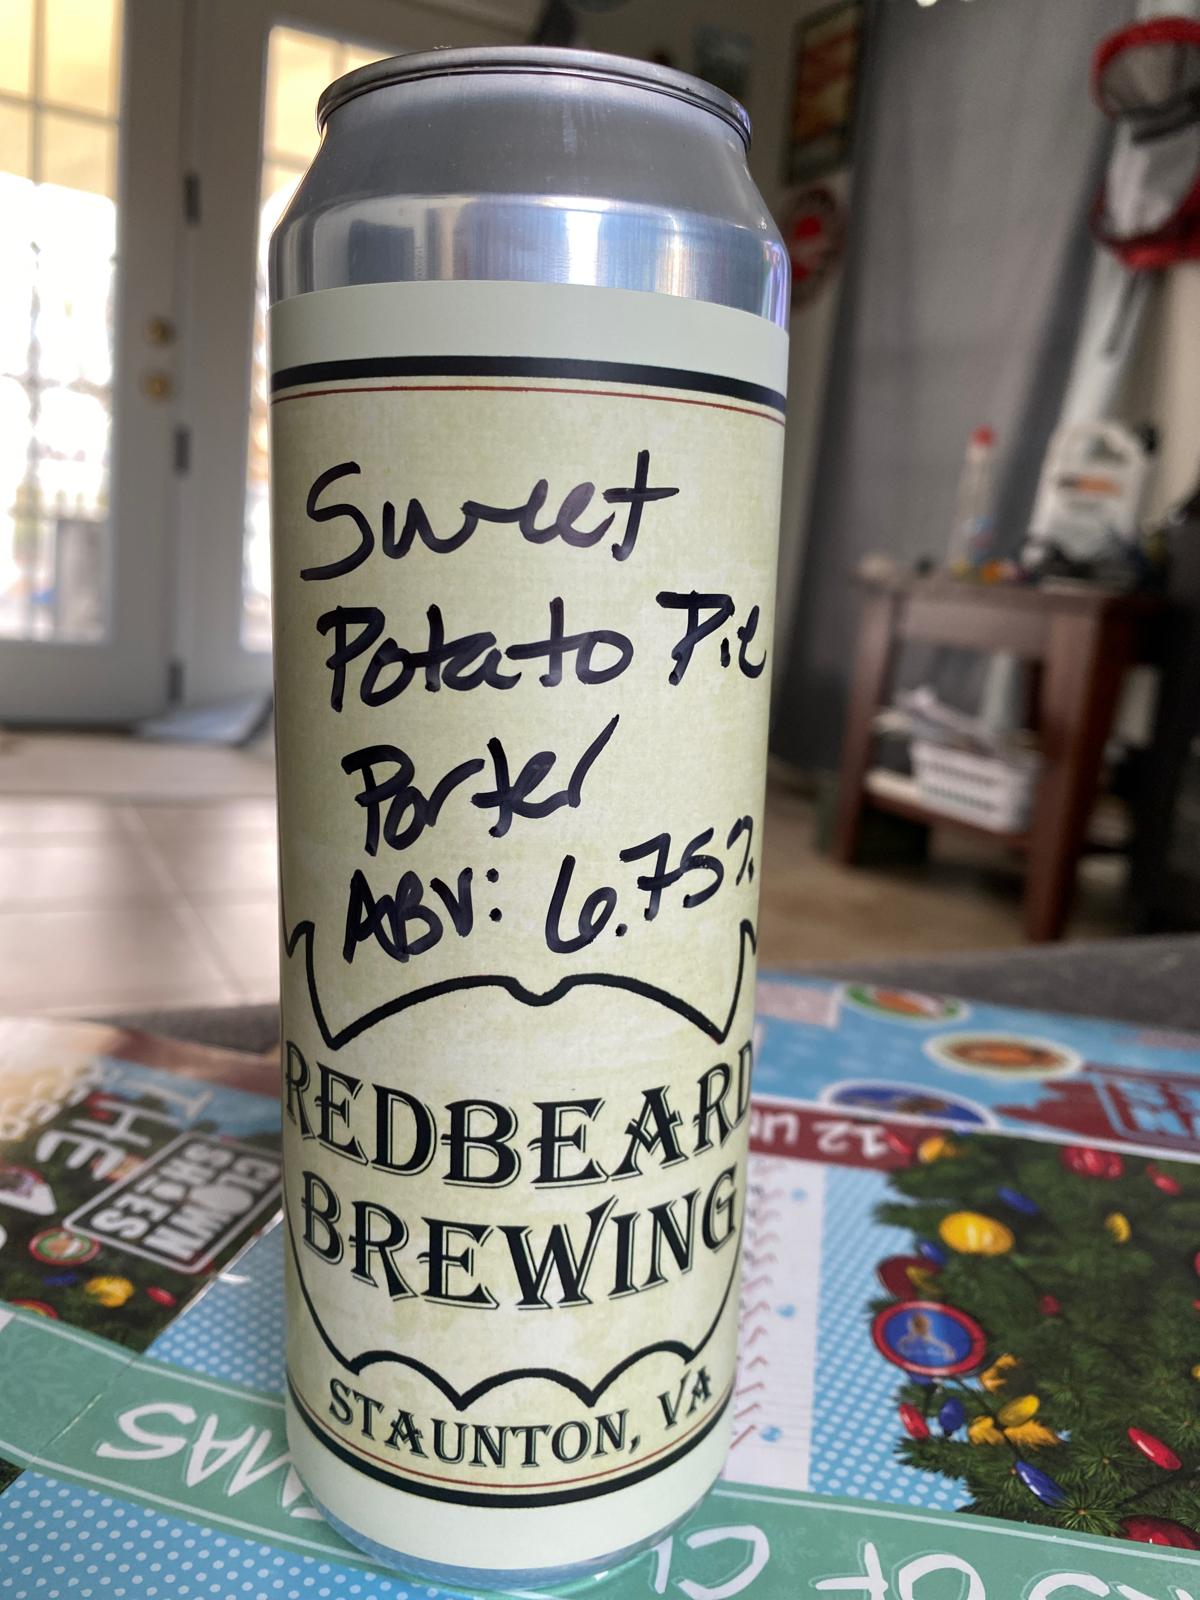 Sweet
Potato Pie
Porter
ABV: 6.75%
REDBEARD
BREWING
STAUNTON, VA
THE
CLOWN
SHOES
12 
MAS
OF CL